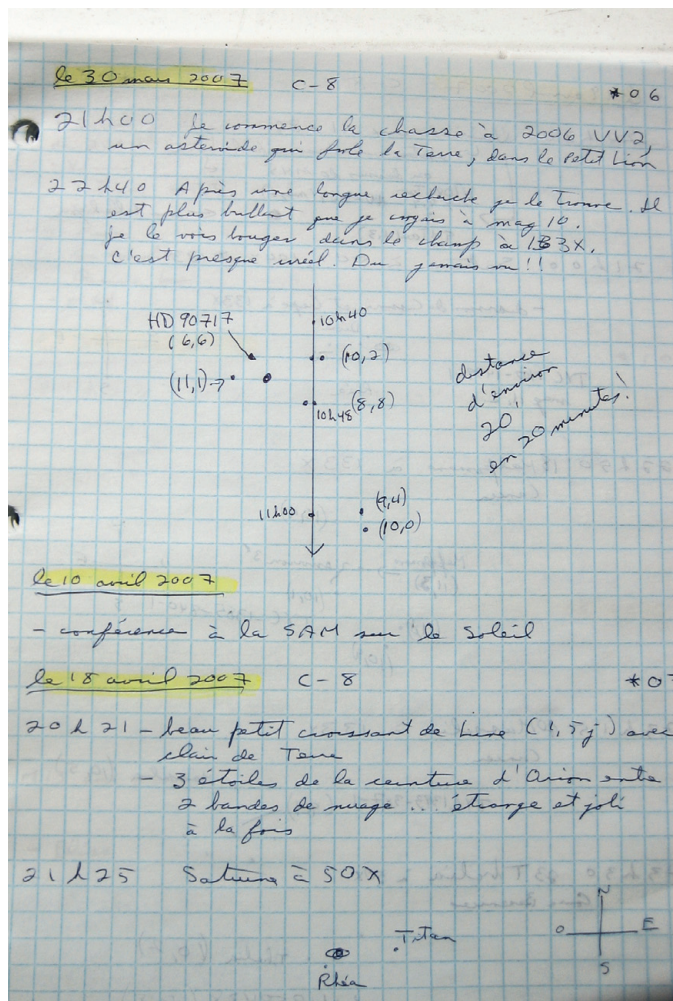 le 30 mars 2007 C-8 *06
21h00 Je commence la chasse à 2006 VV2,
un astéroide qui frole la Terre, dans le Petit Lion
22h40 Après une longue recherche je le trouve. Il
est plus brillant que je croyais à mag 10.
Je le vois bouger dans le champ à 133X.
C'est presque irréel. Du jamais vu!!
10h40
HD 90717
(6,6)
(10,2)
(11,1)→
(8,8)
10h48
distance
d'environ
20'
en 20 minutes!
11h00
(9,4)
(10,0)
le 10 avril 2007
- conférence à la SAM sur le Soleil
le 18 avril 2007 C-8 *07
20h21 - beau petit croissant de Lune (1,5j) avec
clair de Terre
- 3 étoiles de la ceinture d'Orion entre
2 bandes de nuage... étrange et joli
à la fois
21h25 Saturne à 50X
N
O E
S
Titan
Rhéa